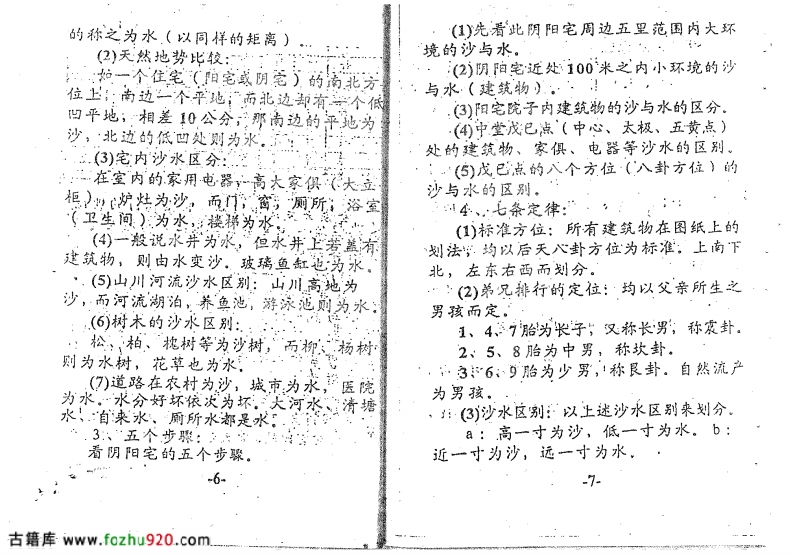 的称之为水(以同样的矩离)。
(2)天然地势比较:
如一个住宅(阳宅或阴宅)的南北方
位上,南边一个平地,而北边却有一个低
凹平地,相差10公分,那南边的平地为
沙,北边的低凹处则为水。
(3)宅内沙水区分:
在室内的家用电器,高大家俱(大立
柜),炉灶为沙,而门,窗,厕所,浴室
(卫生间)为水,楼梯为水。
(4)一般说水井为水,但水井上若盖有
建筑物,则由水变沙。玻璃鱼缸也为水。
(5)山川河流沙水区别:山川高地为
沙,而河流湖泊,养鱼池,游泳池则为水。
(6)树木的沙水区别:
松、柏、槐树等为沙树,而柳、杨树
则为水树,花草也为水。
(7)道路在农村为沙,城市为水,医院
为水。水分好坏依次为坏。大河水、清塘
水、自来水、厕所水都是水。
3、五个步骤:
看阴阳宅的五个步骤。
-6-
(1)先看此阴阳宅周边五里范围内大环
境的沙与水。
(2)阴阳宅近处100米之内小环境的沙
与水(建筑物)。
(3)阳宅院子内建筑物的沙与水的区分。
(4)中堂戊己点(中心、太极、五黄点)
处的建筑物、家俱、电器等沙水的区别。
(5)戊己点的八个方位(八卦方位)的
沙与水的区别。
4、七条定律:
(1)标准方位:所有建筑物在图纸上的
划法,均以后天八卦方位为标准。上南下
北,左东右西而划分。
(2)弟兄排行的定位:均以父亲所生之
男孩而定。
1、4、7胎为长子,又称长男,称震卦。
2、5、8胎为中男,称坎卦。
3、6、9胎为少男,称艮卦。自然流产
为男孩。
(3)沙水区别:以上述沙水区别来划分。
a:高一寸为沙,低一寸为水。b:
近一寸为沙,远一寸为水。
-7-
古籍库 www.fozhu920.com